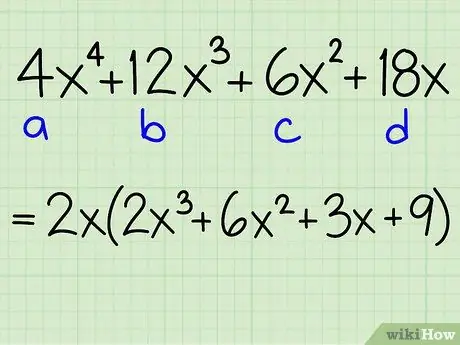 4x⁴+12x³+6x²+18x
a b c d
=2x(2x³+6x²+3x+9)
wikiHow